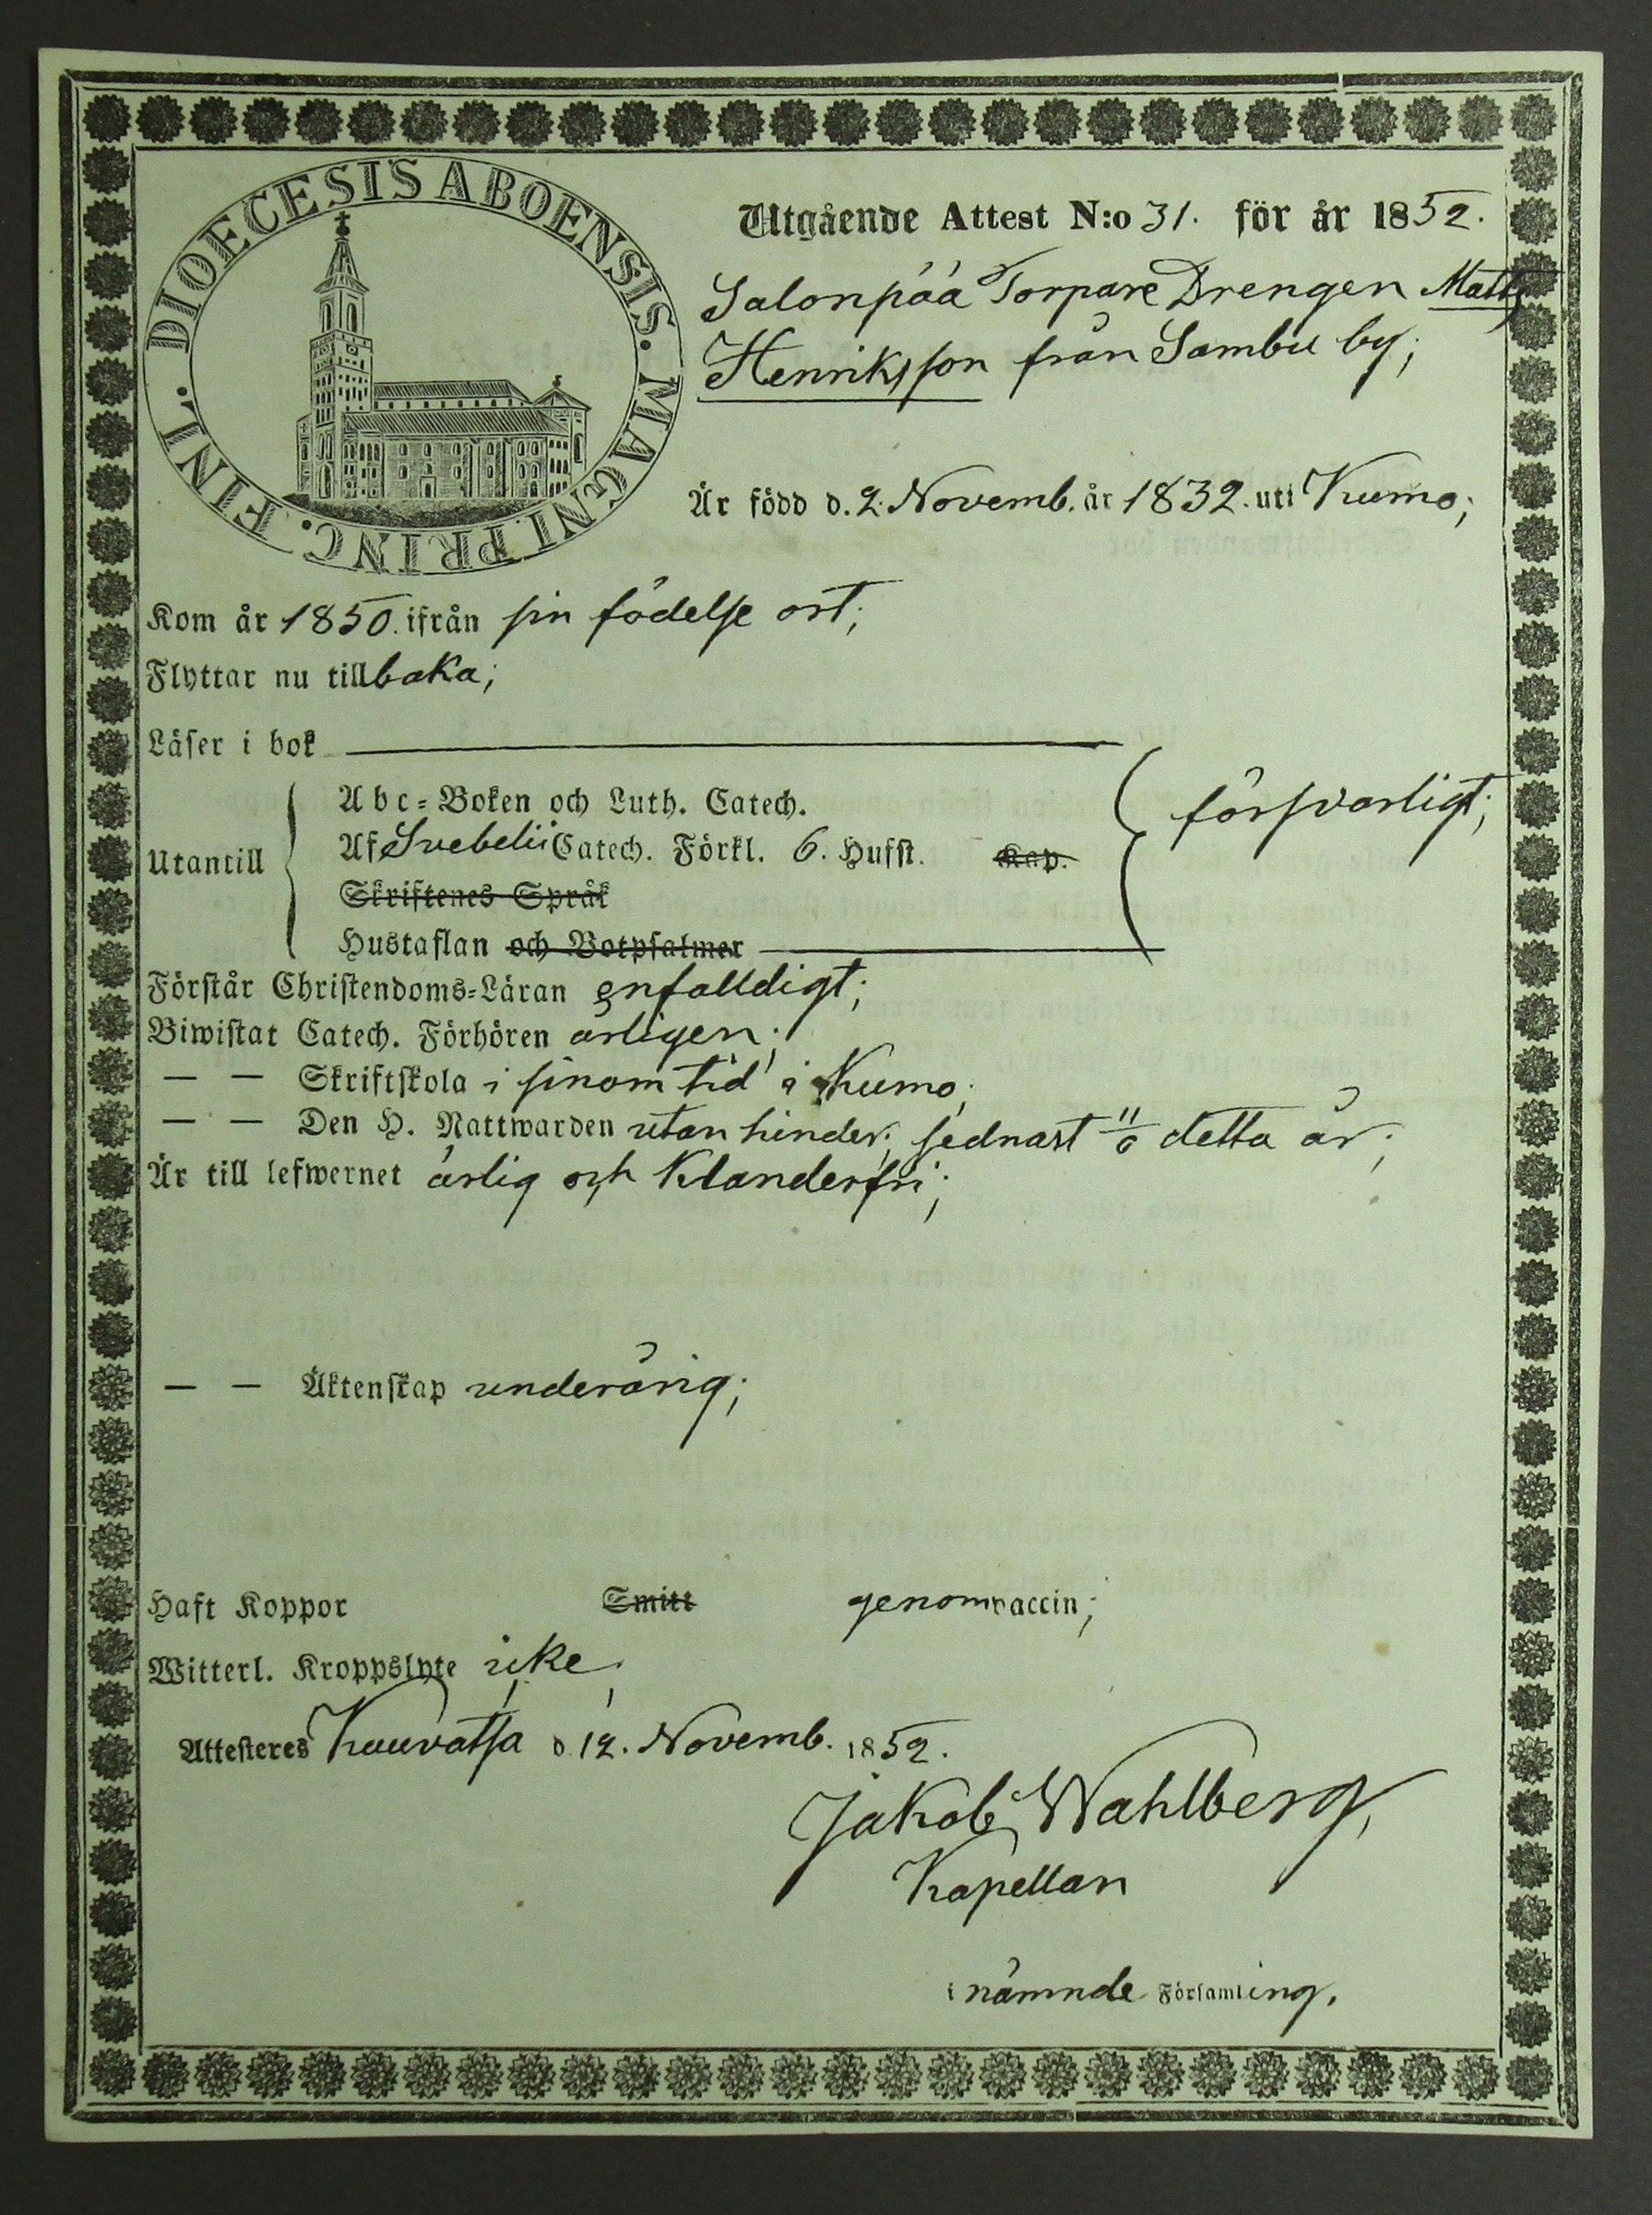 DIOECESIS ABOENSIS. MAGNI PRINC. FINL.
Utgående Attest N:o 31. för år 1852.
Salonpää Torpare Drengen Matts
Henriksson från Sambu by;
Är född d. 2. Novemb. år 1832. uti Kumo;
Kom år 1850. ifrån sin födelse ort;
Flyttar nu tillbaka;
Läser i bok
Abc-Boken och Luth. Catech.
Utantill Af Svebelii Catech. Förkl. 6. Hufst. Kap. försvarligt;
Skriftenes Språk
Hustaflan och Botpsalmer
Förstår Christendoms-Läran enfalldigt;
Biwistat Catech. Förhören årligen;
— — Skriftskola i sinom tid i Kumo;
— — Den H. Nattwarden utan hinder; sednast detta år;
Är till lefwernet ärlig och klanderfri;
— — Äktenskap underårig;
Haft Koppor Smitt genom vaccin;
Witterl. Kroppslyte icke;
Attesteres Kauvatsa d. 12. Novemb. 1852.
Jakob Wahlberg,
Kapellan
i nämnde Församling.